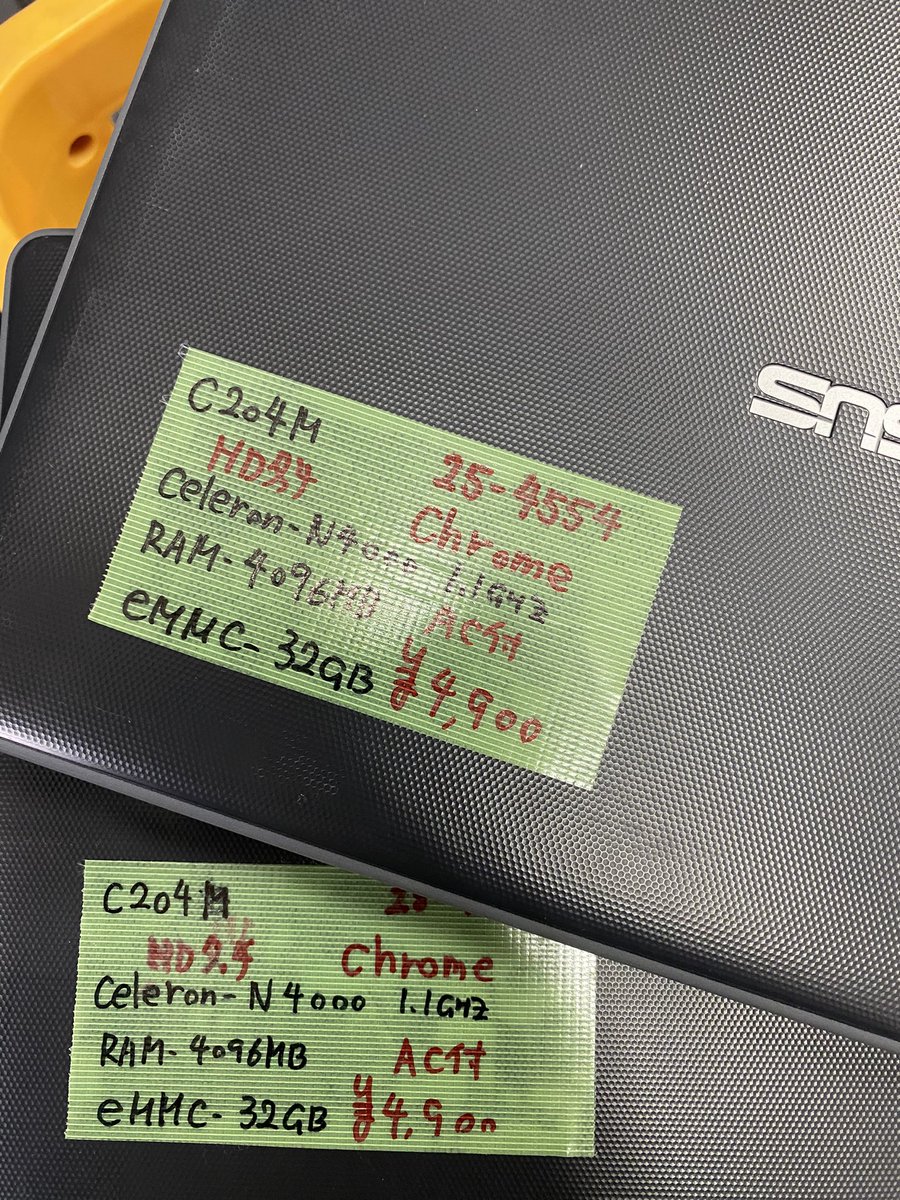 SUS
C204M
25-4554
HD
Chrome
Celeron-N4000 1.1GHZ
RAM-4096MB AC付
eMMC-32GB ¥4,900
C204M
HD
Chrome
Celeron-N4000 1.1GHZ
RAM-4096MB AC付
eMMC-32GB ¥4,900